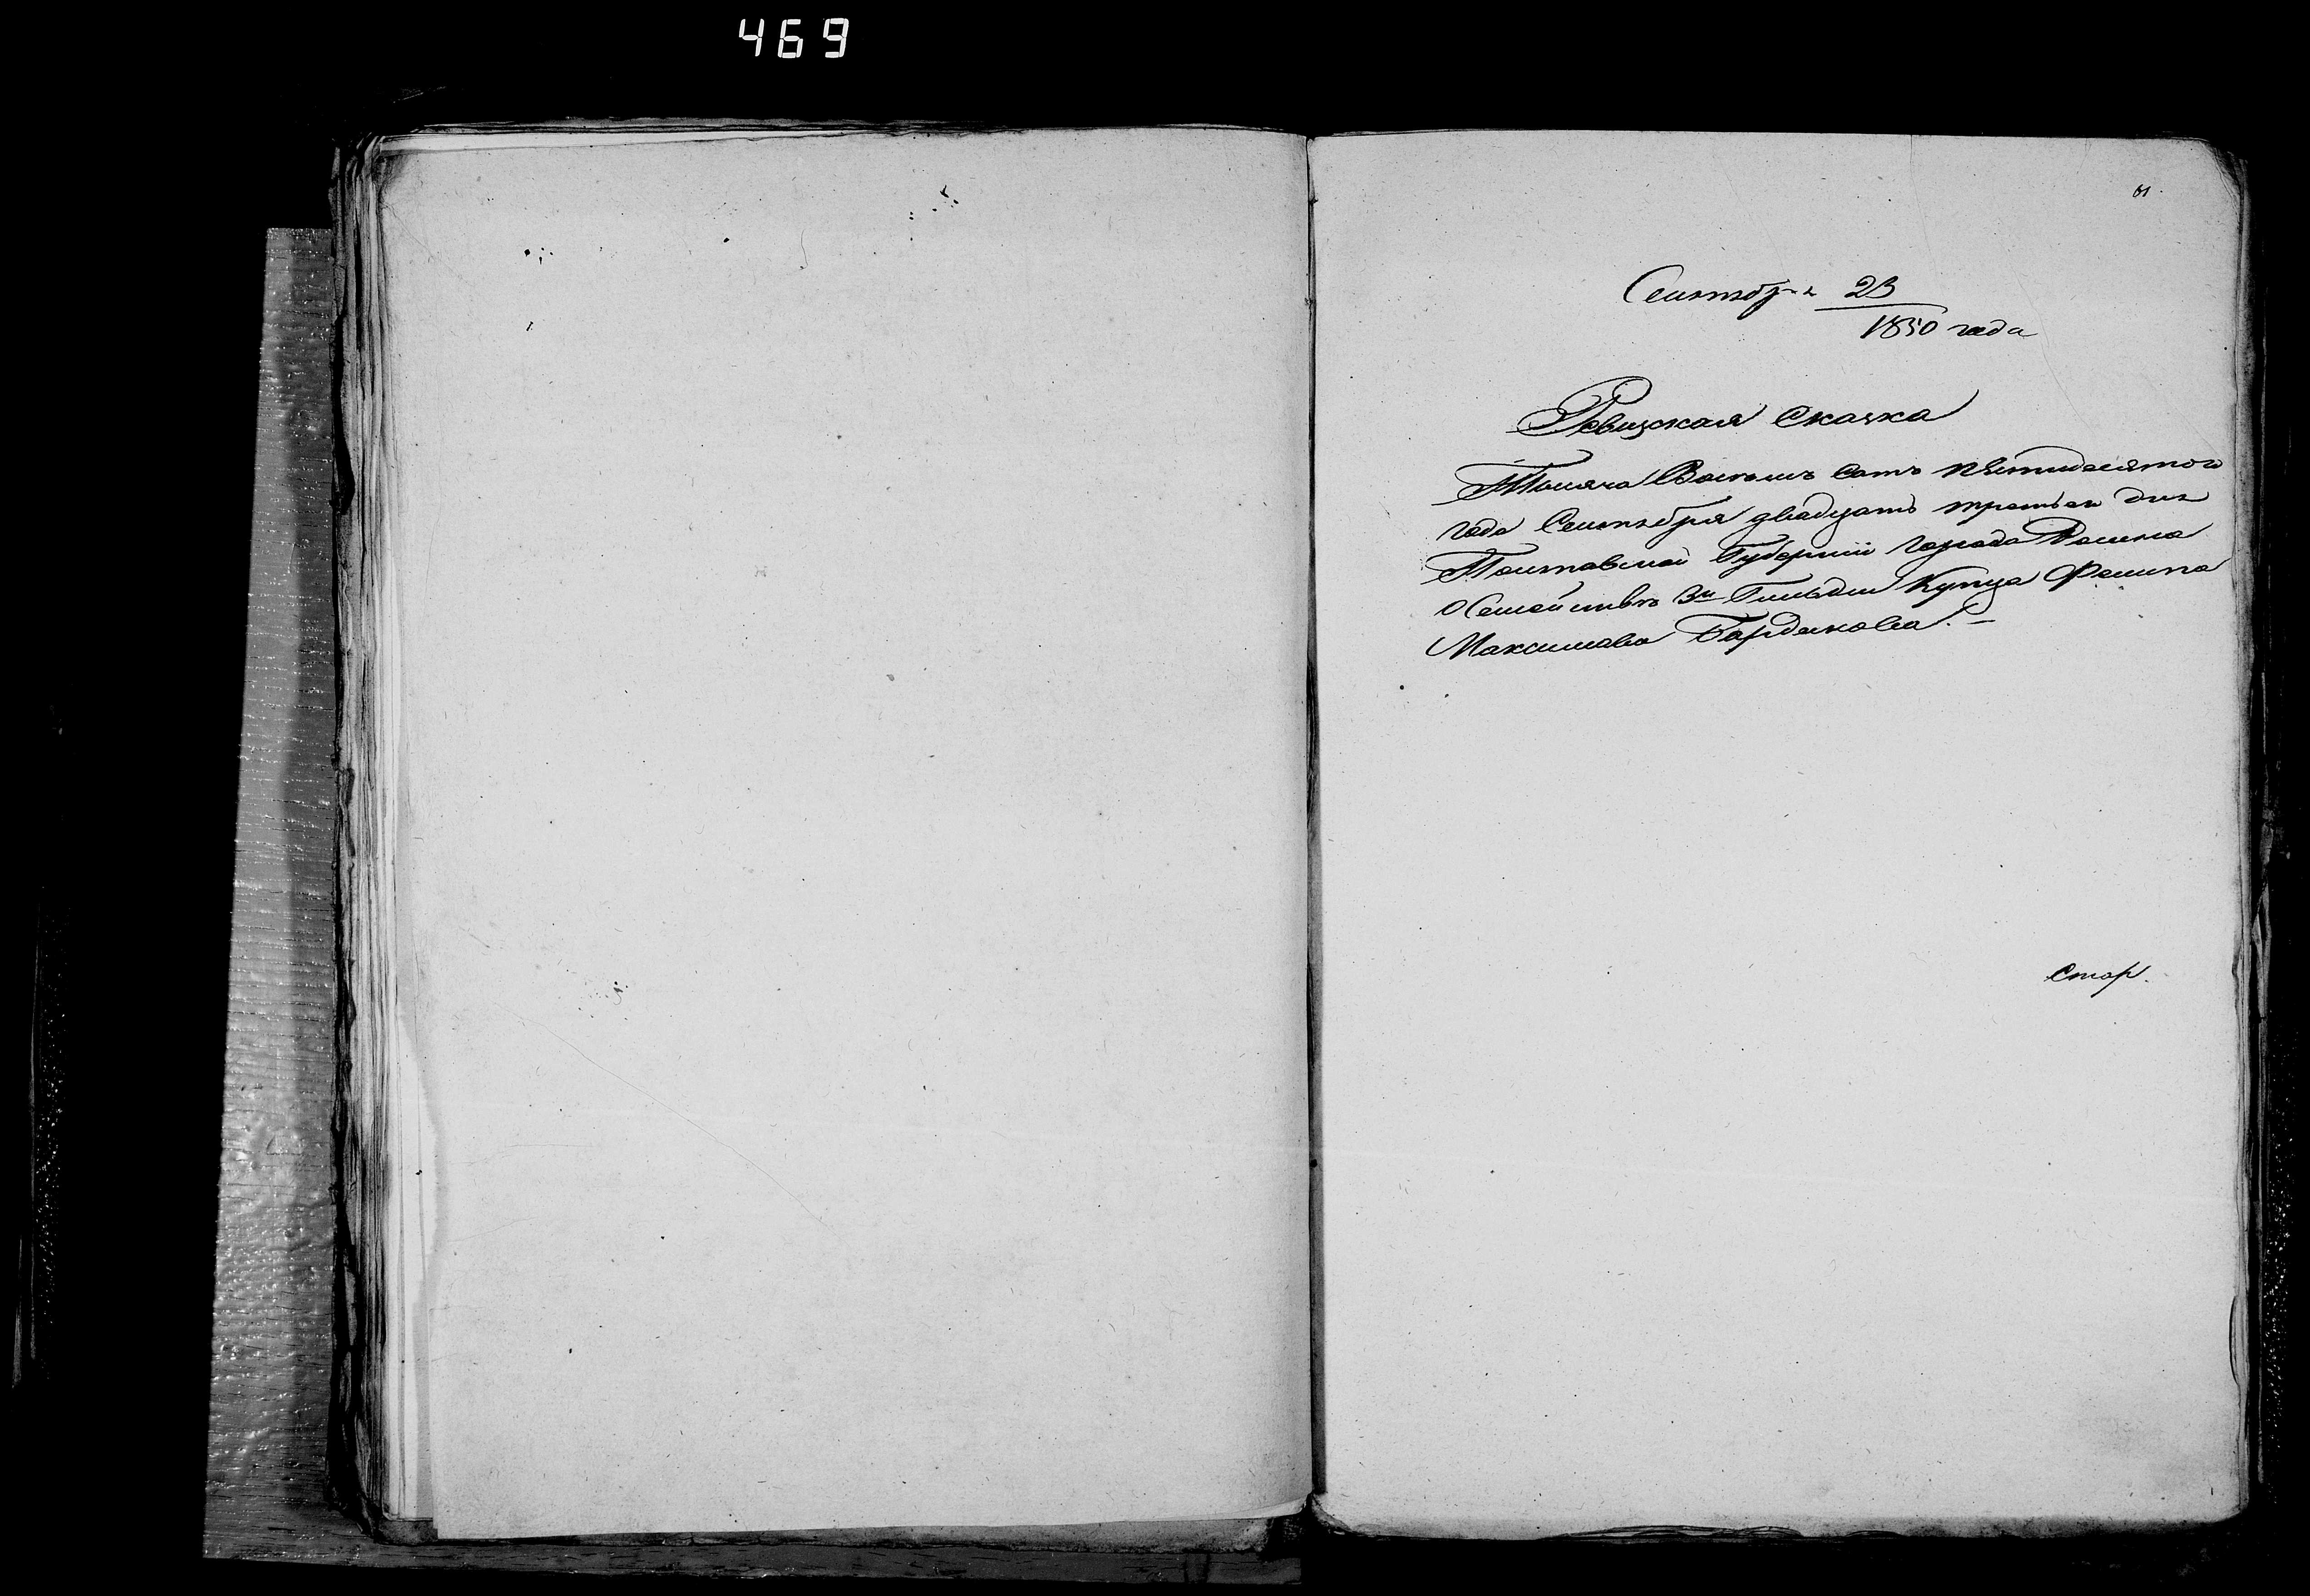 469
Сентября 23
1850 года
Ревизская Сказка
Тысяча Восемь Сотъ пятидесятого
года Сентября двадцать третьяго дня
Полтавской Губерніи Города Ромна
О Семействѣ 3й Гильдіи Купца Филипа
Максимова Бардакова.
Стор.